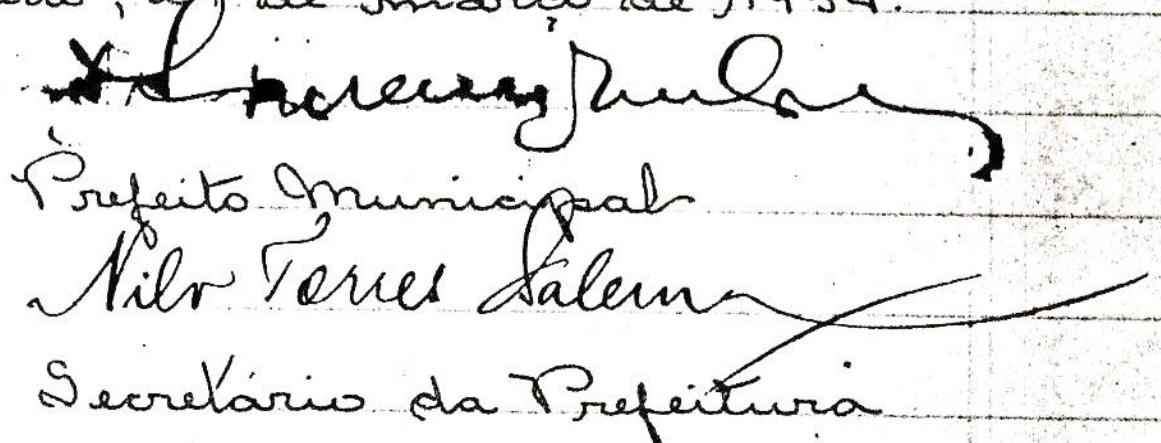 de março de 1954.
Prefeito Municipal
Nilo Torres Salema
Secretário da Prefeitura